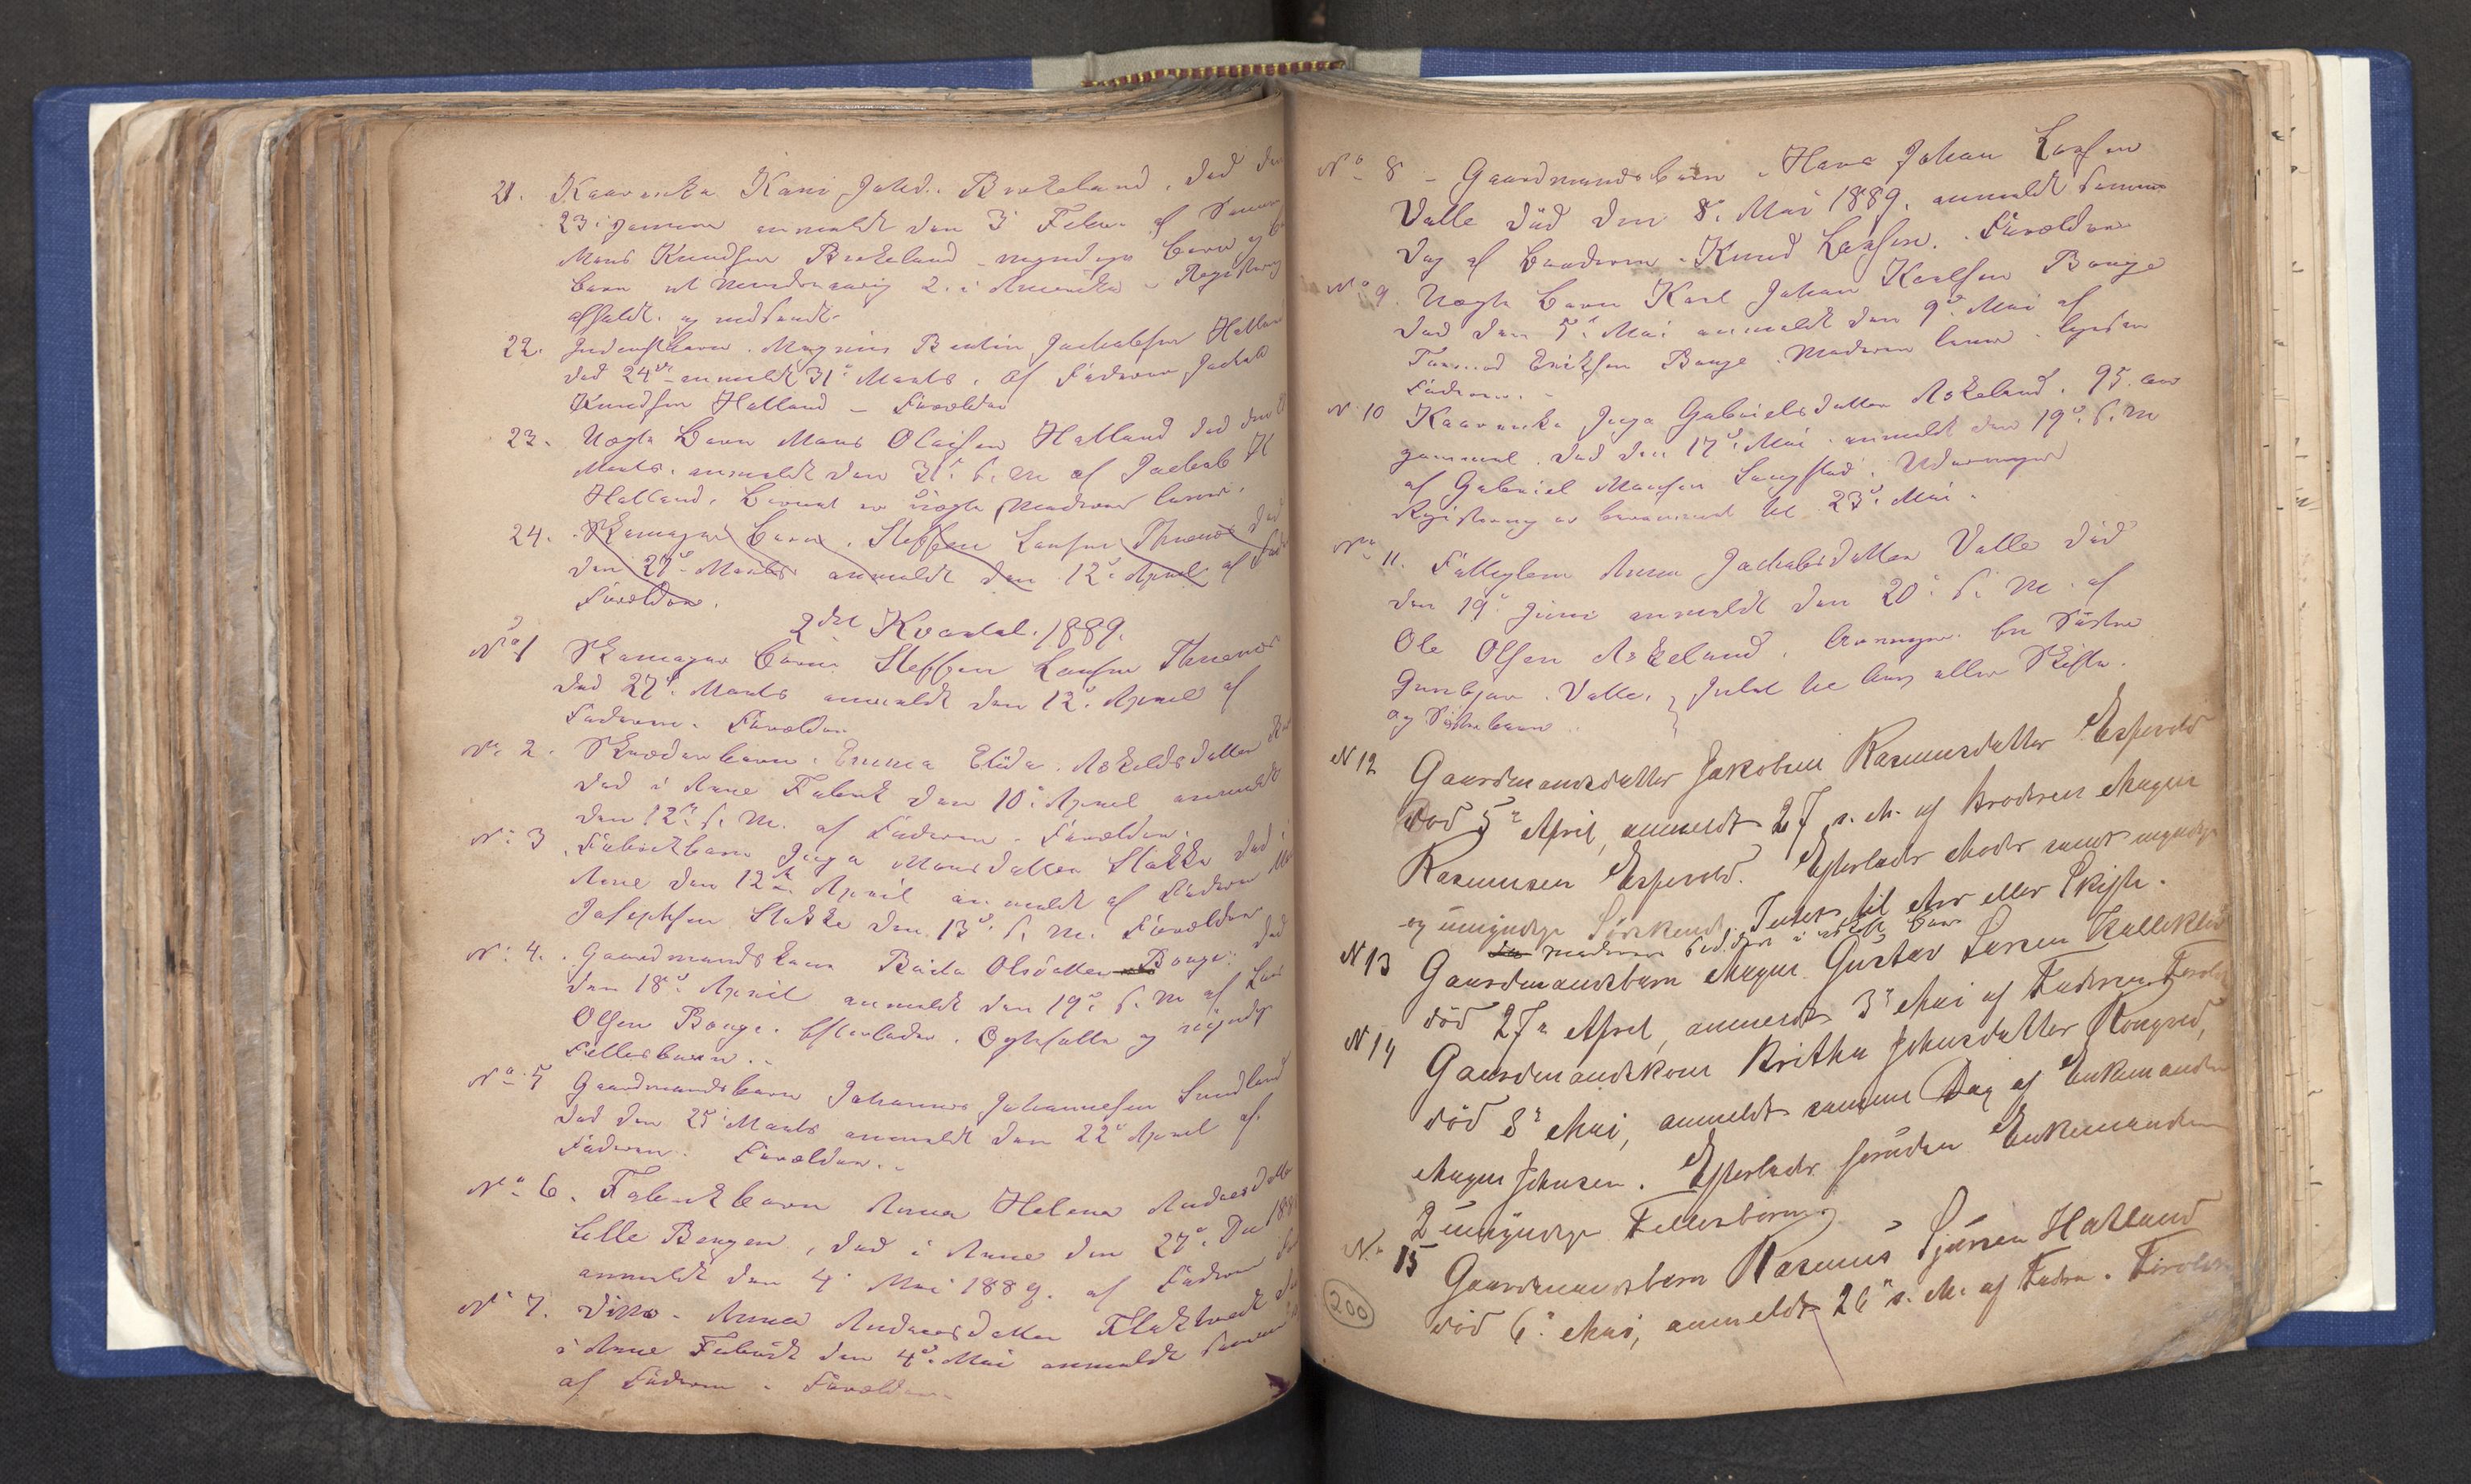 21. Kaarenke Kari Johd. Birkeland, død den
23. Januar anmeldt den 3 Febr. af Sønnen
Mons Knudsen Birkeland - myndige Børn og
Børn et 2. i Amerika - Registrering
afholdt og nedsendt.
22. Inderstbarn. Magnus Bertin Jachobsen Hatland
død 24de anmeldt 31 Marts. af Faderen Jachob
Knudsen Hatland - Forældre
23. Uægte Barn Mons Olaisen Hatland død den
Marts. anmeldt den 31. s. M. af Jachob
Hatland. Barnet er uægte Moderen lever.
24. Skomager Barn. Steffen Larsen død
den 27. Marts anmeldt den 12. April af
Forældre.
2det Kvartal. 1889.
No 1 Skomager Barn Steffen Larsen
død 27. Marts anmeldt den 12. April af
Faderen. Forældre
No 2. Skrædderbarn. Emma Elida Askeldsdatter
død i Arne Fabrik den 10. April anmeldt
den 12te s. M. af Faderen. Forældre.
No 3. Fabrikbarn Inga Monsdatter Stakke død i
Arne den 12te April anmeldt af Faderen
Josephsen Stakke den 13. s. M. Forældre
No 4. Gaardmandskone Brita Olsdatter Bouge død
den 18. April anmeldt den 19. s. M. af Lars
Olsen Bouge. Efterlader. Ægtefælle og
Fellesbørn.
No 5 Gaardmandsbarn Johannes Johannesen Sundland
død den 25 Marts anmeldt den 22. April af
Faderen. Forældre.
No 6. Fabrikbarn Anna Helena Andersdatter
Lille Bergen, død i Arne den 27. De
anmeldt den 4. Mai 1889. af Faderen
No 7. Ditto - Anna Andersdatter Flaktvedt
i Arne Fabrik den 4. Mai anmeldt samme
af Faderen. Forældre
No 8 - Gaardmandsbarn. Hans Johan Larsen
Valle död den 8. Mai 1889. anmeldt samme
Dag af Broderen Knud Larsen. Forældre
No 9. Uægte Barn Karl Johan Karlsen Bouge
død den 5. Mai anmeldt den 9. Mai af
Tormod Eriksen Bouge. Moderen lever. ligesom
Faderen.
No 10 Kaarenke Inga Gabrielsdatter Askeland. 95. aar
gammel. død den 17. Mai. anmeldt den 19. s. M
af Gabriel Monsen Langstad.
Registrering er berammet til 23. Mai.
No 11. Fattiglem Anna Jachobsdatter Valle död
den 19. Juni anmeldt den 20. s. M. af
Ole Olsen Askeland. Arvinger. en Søster
Gunbjør. Valle. Intet til Arv eller Skifte.
og Søsterbørn
N 12 Gaardmandsdatter Jakobine Rasmusdatter Espevold
död 5te April, anmeldt 27 s. M. af Broderen Magne
Rasmusen Espevold. Efterlader Moder samt myndige
og umyndige Søskende. Intet til Arv eller Skifte.
N 13 Gaardmandsbarn Magne Gustav Larsen
död 27de April, anmeldt 3de Mai af Faderen
N 14 Gaardmandskone Britha Johnsdatter Rongved,
död 8de Mai, anmeldt samme Dag af Enkemanden
Magne Johnsen. Efterlader foruden Enkemanden
2 umyndige Fellesbørn
N. 15 Gaardmandsbarn Rasmus Sjursen Hatland
död 6. Mai, anmeldt 26de s. M. af Fadren. Foreldre
200